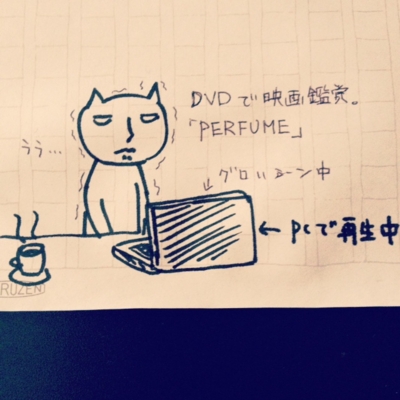 DVDで映画鑑賞。
「PERFUME」
うぅ…
グロいシーン中
←PCで再生中
RUZEN